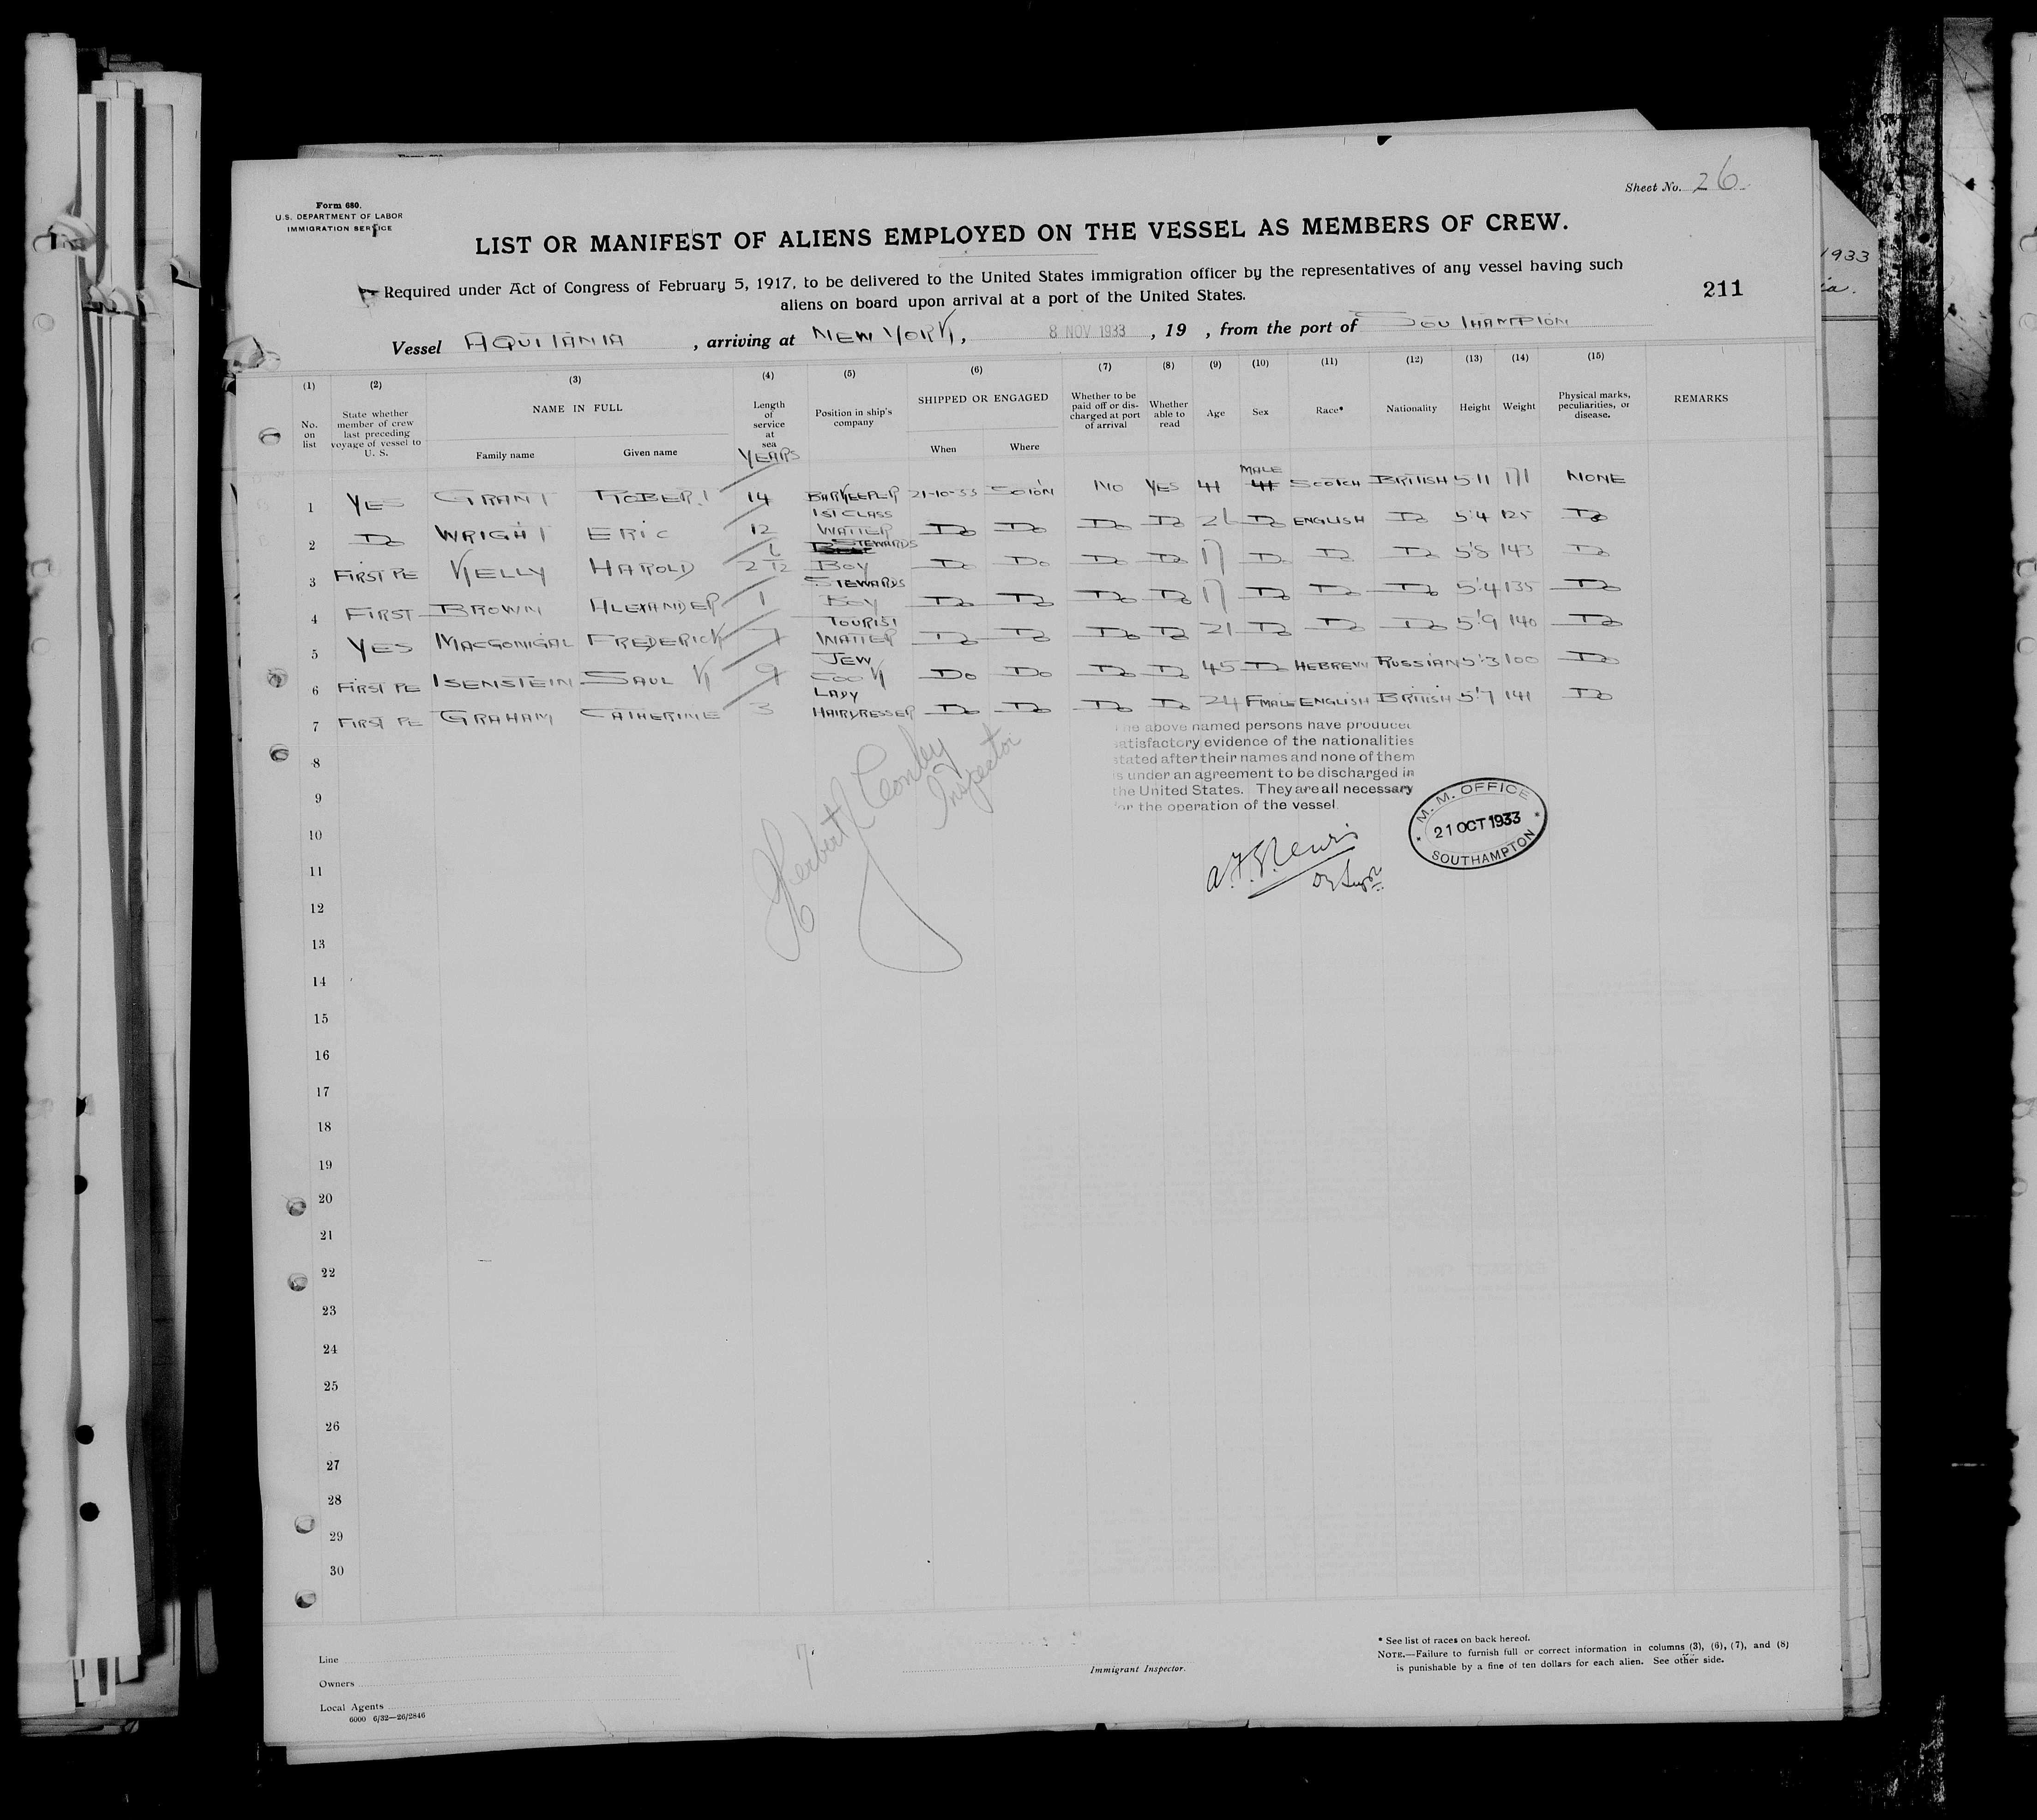 Sheet No. 26
Form 680.
U.S. DEPARTMENT OF LABOR
IMMIGRATION SERVICE
LIST OR MANIFEST OF ALIENS EMPLOYED ON THE VESSEL AS MEMBERS OF CREW.
Required under Act of Congress of February 5, 1917, to be delivered to the United States immigration officer by the representatives of any vessel having such
aliens on board upon arrival at a port of the United States.
211
1933
ia.
Vessel AQUITANIA , arriving at NEW YORK, 8 NOV 1933 , 19 , from the port of SOUTHAMPTON
(1) (2) (3) (4) (5) (6) (7) (8) (9) (10) (11) (12) (13) (14) (15)
No. on list
State whether member of crew last preceding voyage of vessel to U. S.
NAME IN FULL
Family name Given name
Length of service at sea
YEARS
Position in ship's company
SHIPPED OR ENGAGED
When Where
Whether to be paid off or discharged at port of arrival
Whether able to read
Age
Sex
Race*
Nationality
Height
Weight
Physical marks, peculiarities, or disease.
REMARKS
1 YES GRANT ROBERT 14 BARKEEPER 21-10-33 SOTON NO YES 41 MALE SCOTCH BRITISH 5'11 171 NONE
2 DO WRIGHT ERIC 12 1ST CLASS WAITER DO DO DO DO 26 DO ENGLISH DO 5'4 125 DO
3 FIRST PE KELLY HAROLD 2 6/12 B STEWARDS BOY DO DO DO DO 17 DO DO DO 5'8 143 DO
4 FIRST BROWN ALEXANDER 1 STEWARDS BOY DO DO DO DO 17 DO DO DO 5'4 135 DO
5 YES MACGONIGAL FREDERICK 7 TOURIST WAITER DO DO DO DO 21 DO DO DO 5'9 140 DO
6 FIRST PE ISENSTEIN SAUL K 9 JEW COOK DO DO DO DO 45 DO HEBREW RUSSIAN 5'3 100 DO
7 FIRST PE GRAHAM CATHERINE 3 LADY HAIRDRESSER DO DO DO DO 24 FMALE ENGLISH BRITISH 5'7 141 DO
The above named persons have produced
satisfactory evidence of the nationalities
stated after their names and none of them
is under an agreement to be discharged in
the United States. They are all necessary
for the operation of the vessel.
8
9
10
11
12
13
14
15
16
17
18
19
20
21
22
23
24
25
26
27
28
29
30
Herbert
Inspector
M. M. OFFICE
21 OCT 1933
SOUTHAMPTON
Line
Owners
Local Agents
6000 6/32—26/2846
7
Immigrant Inspector.
* See list of races on back hereof.
NOTE.—Failure to furnish full or correct information in columns (3), (6), (7), and (8)
is punishable by a fine of ten dollars for each alien. See other side.